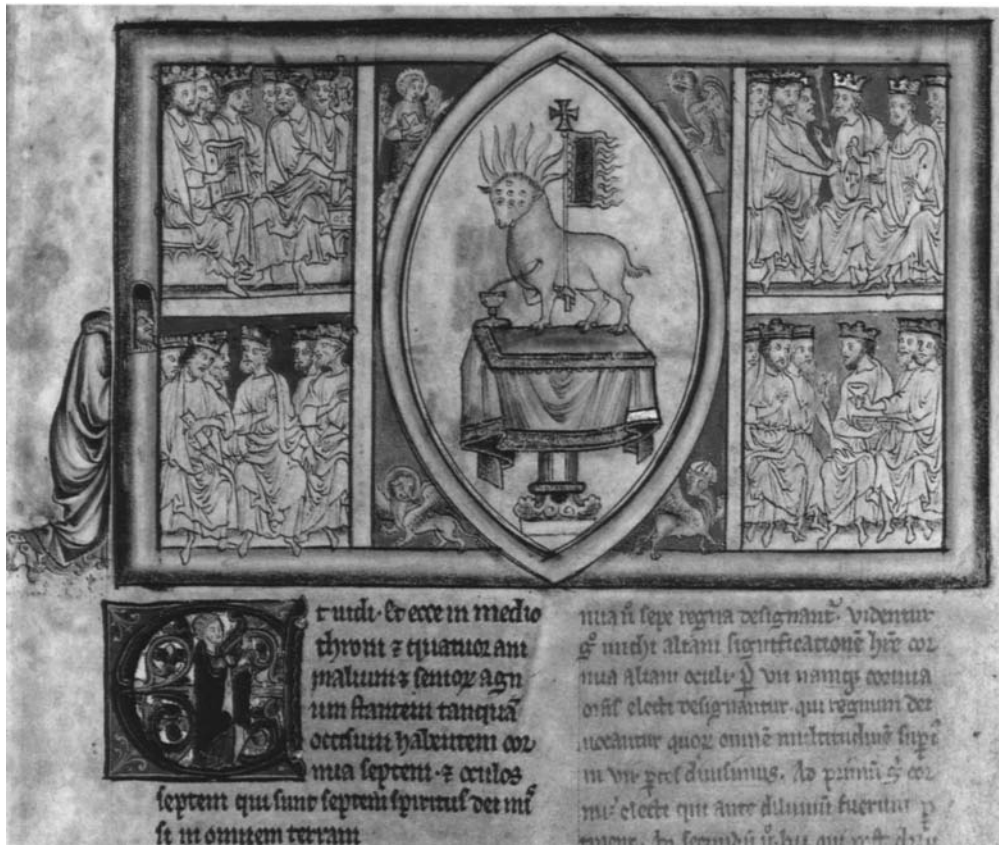 Et uidi. Et ecce in medio
throni ⁊ quatuor ani
malium ⁊ senioꝝ agn
um stantem tanquã
occisum habentem cor
nua septem. ⁊ oculos
septem qui sunt septem spiritus dei mis̃
si in omnem terram
nua ũ sepe regna designant᷑. Videntur
g̊ michi aliam significationẽ hr̃e cor
nua aliam oculi. ꝑ vii namq; cornua
om̃s electi designantur. qui regnum dei
uocantur quoꝝ omnẽ multitudinẽ supi᷑
in vii ꝑtes diuisimus. Ad primũ g̊ cor
nu electi qui ante diluuiũ fuerunt ꝑ
tinent. secundũ hii qui post